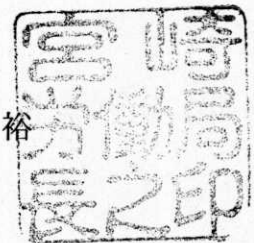 裕
宮崎
労働局
長之印